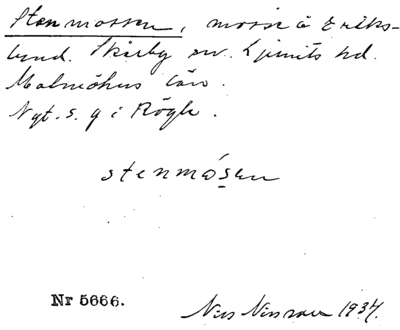 Stenmossen, mosse å Eriks-
lund. Skarby sn. Ljunits hd.
Malmöhus län.
Nyt. s. g i Rögla.
stenmósen
Nr 5666.
Nils Nilsson 1934.